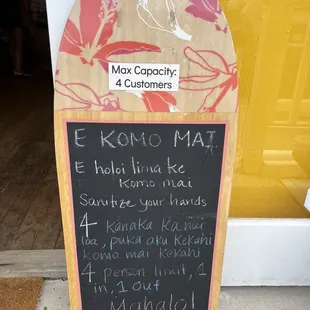 E KOMO MAI
Max Capacity:
4 Customers
E KOMO MAI
E holoi lima ke
komo mai
Sanitize your hands
4 kanaka ka nui
loa, puka aku kekahi
komo mai kekahi
4 person limit, 1
in, 1 out
Mahalo!